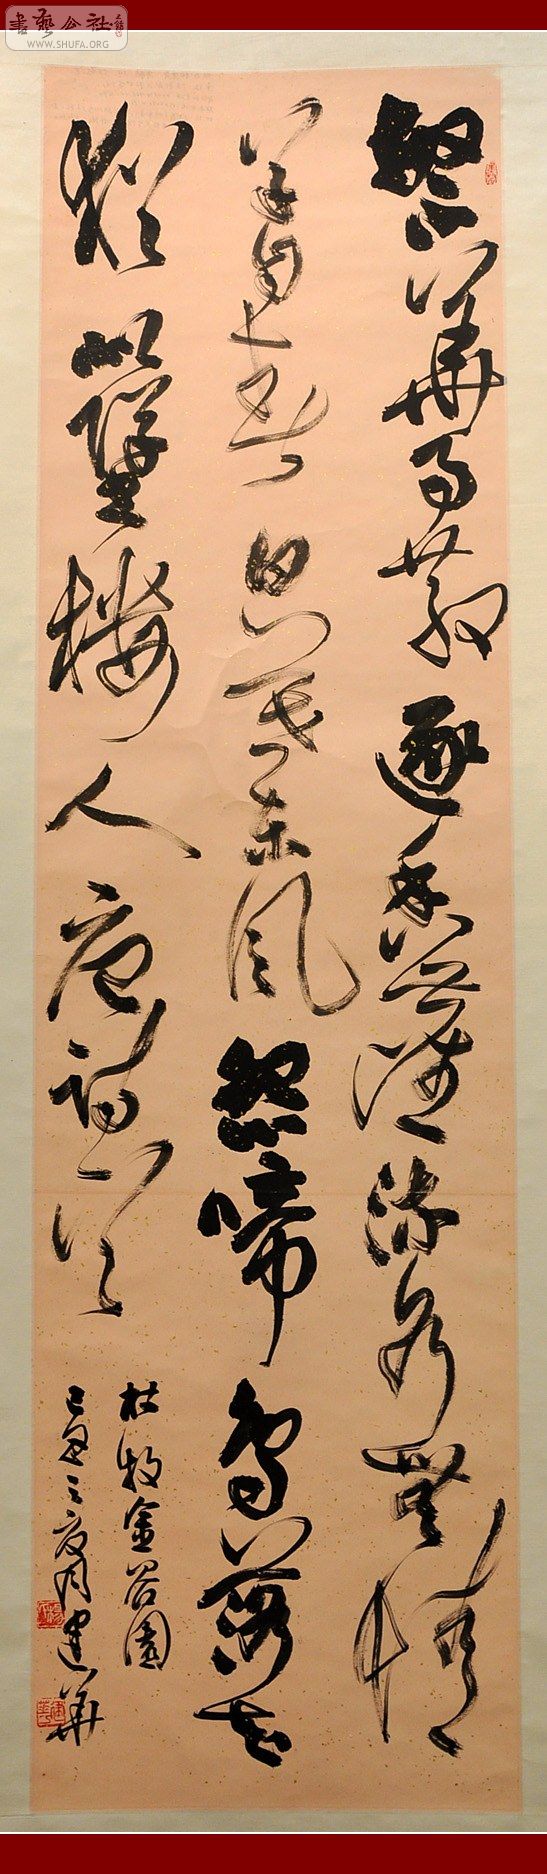 書藝公社
WWW.SHUFA.ORG
繁華事散逐香塵流水無情
草自春日暮東風怨啼鳥落花
猶似墜樓人唐詩
杜牧金谷園
己丑之夏月建華